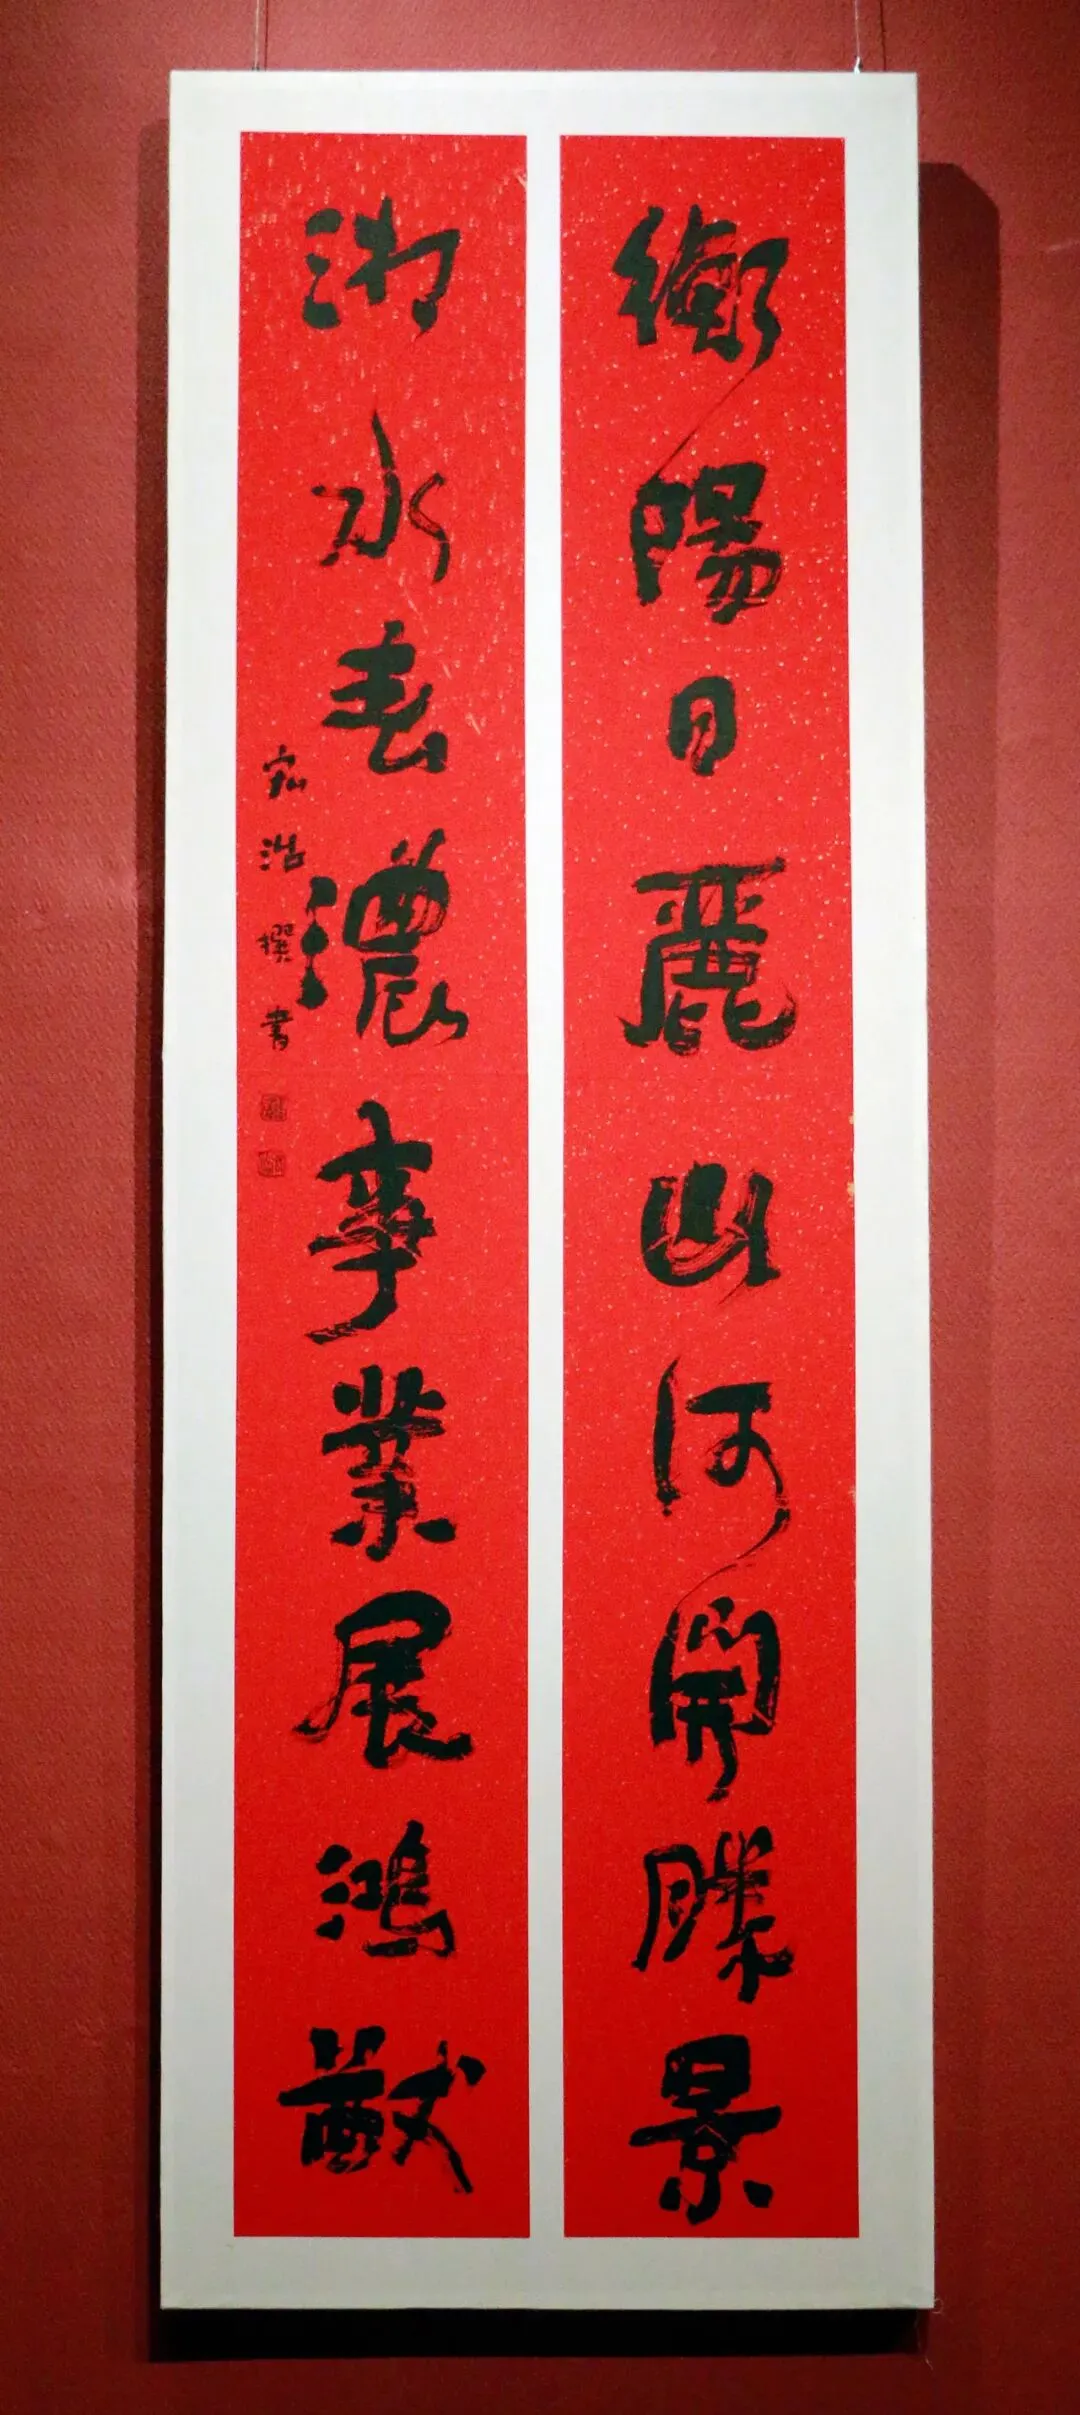 衡陽日麗山河開勝景
湘水春濃事業展鴻猷
宏浩撰書